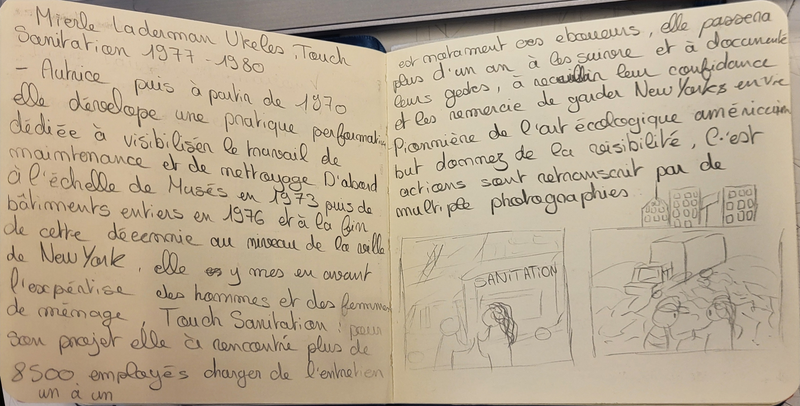 Mierle Laderman Ukeles, Touch
Sanitation 1977 - 1980
- Autrice puis à partir de 1970
elle dévelope une pratique performati
dédiée à visibilisér le travail de
maintenance et de nettoyage D'abord
à l'échelle de Musés en 1973 puis de
bâtiments entiers en 1976 et à la fin
de cette déecennie au niveau de la ville
de New York, elle y mes en avant
l'expértise des hommes et des femmes
de ménage, Touch Sanitation : pour
son projet elle à rencontré plus de
8500 employés charger de l'entretien
un à un
est notament ces eboueurs, elle passera
plus d'un an à les suivre et à documenté
leurs gestes, à recueillir leur confidance
et les remercie de garder New Yorks en vie
Pionnière de l'art écologique américain
but donnez de la visibilité, C'est
actions sont retranscrit par de
multiple photographies
SANITATION